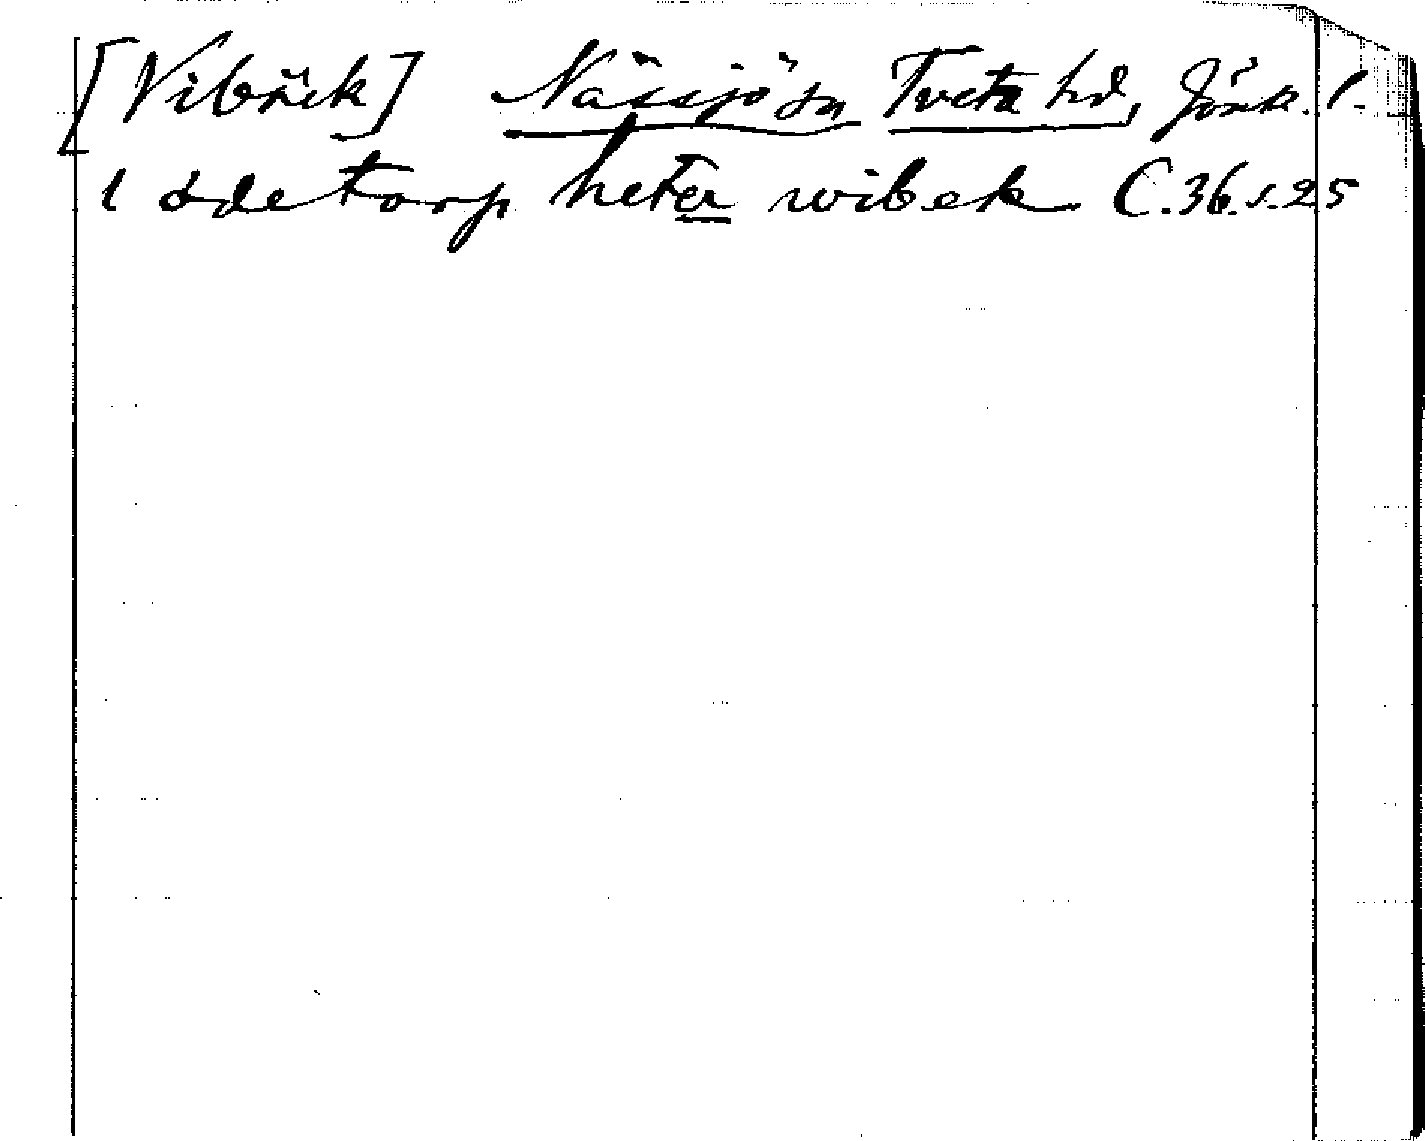 [Vibäck] Nässjö sn Tveta hd, Jönk. l.
1 ödetorp heter wibek C.36.s.25